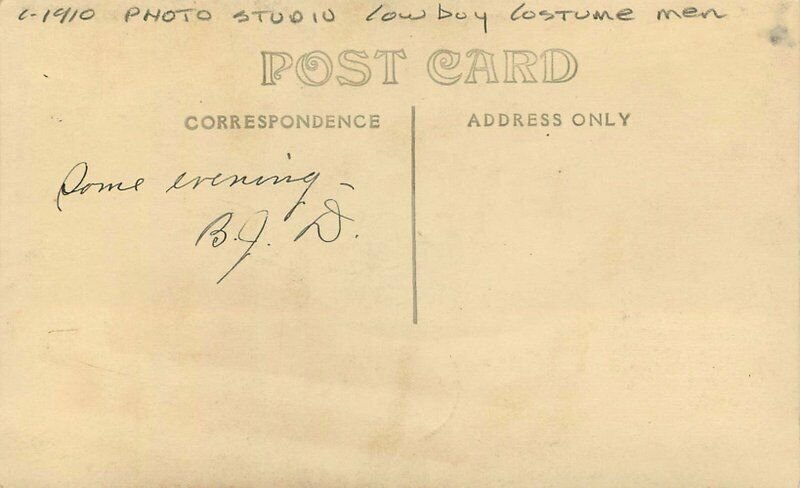 c-1910 PHOTO STUDIO Cowboy Costume men
POST CARD
CORRESPONDENCE
ADDRESS ONLY
Some evening –
B.J. D.